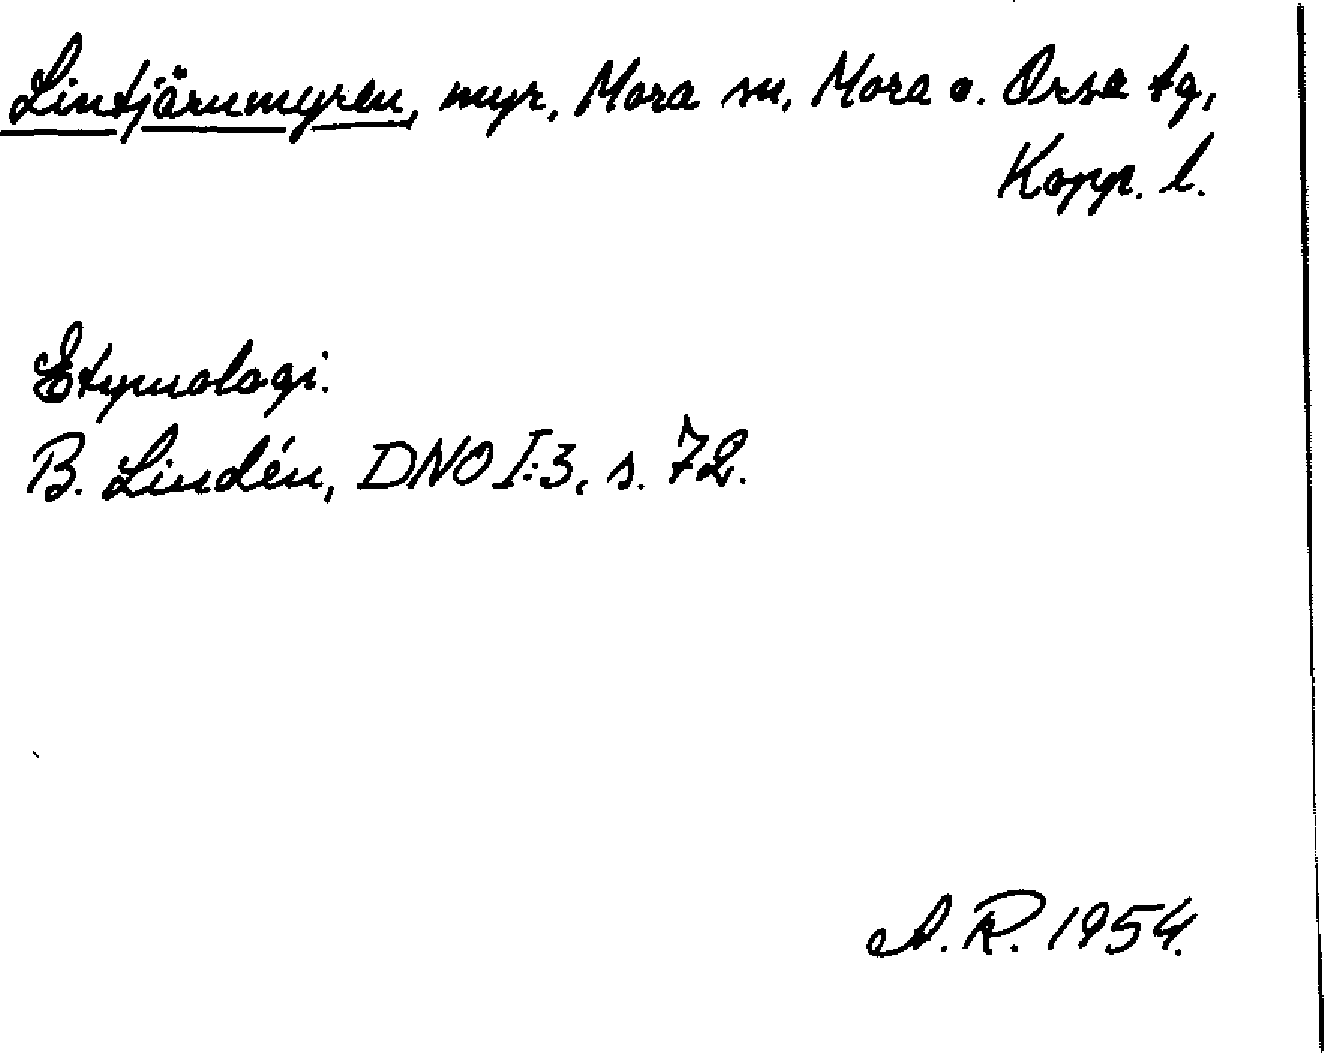 Lintjärnmyren, myr, Mora sn, Mora o. Orsa tg,
Kopp. l.
Etymologi.
B. Lindén, DNO I:3, s. 72.
A. R. 1954.